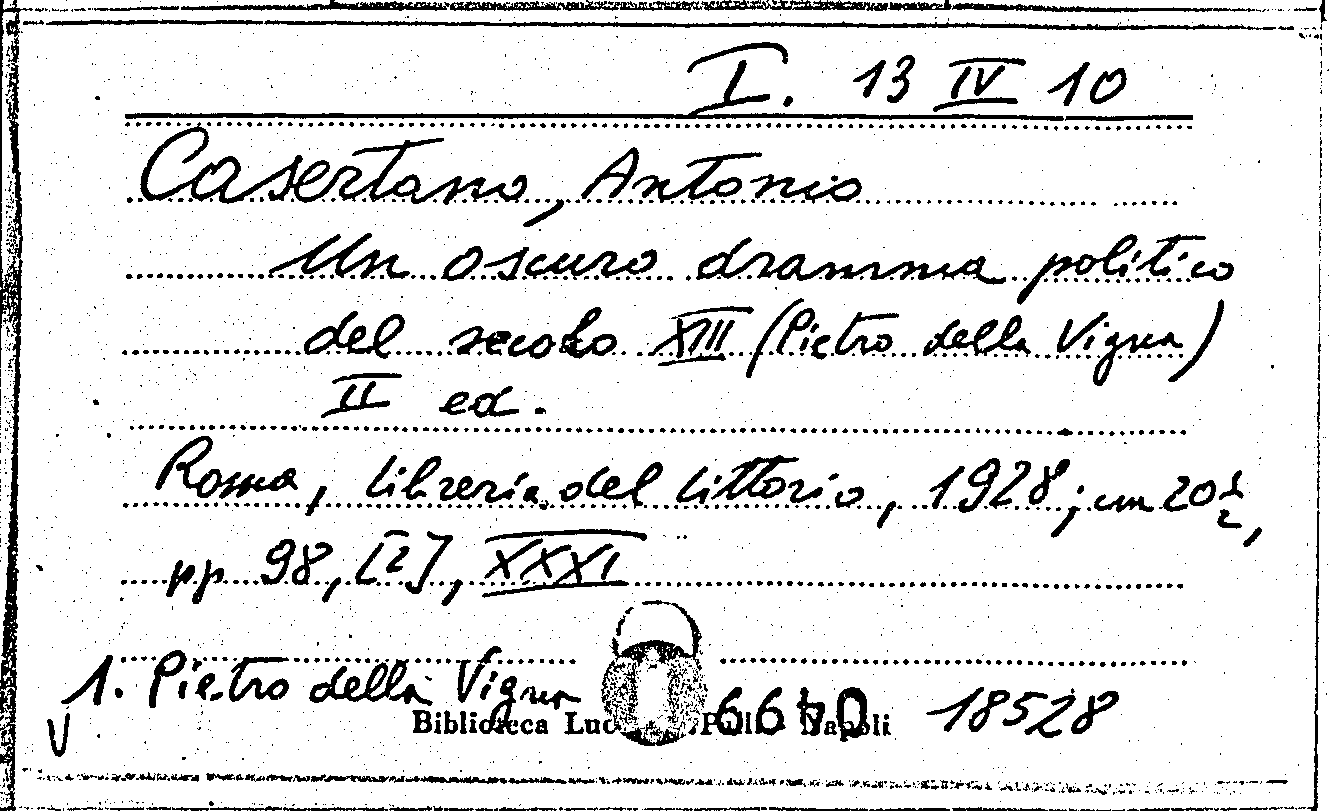 I. 13 IV 10
Casertano, Antonio
Un oscuro dramma politico
del secolo XIII (Pietro della Vigna)
II ed.
Roma, Libreria del Littorio, 1928; cm 20 1/2,
pp 98, [2], XXXI
1. Pietro della Vigna
V
Biblioteca Napoli
18528